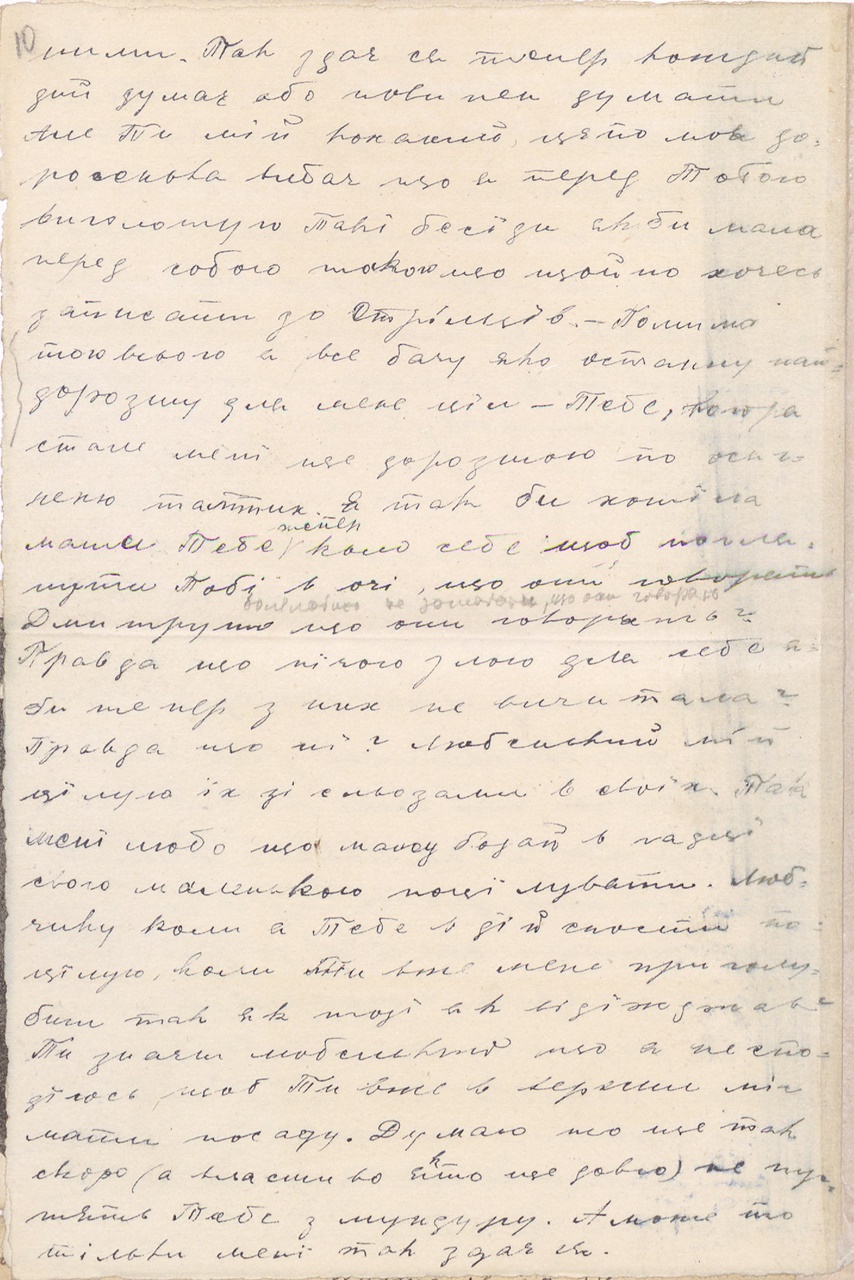 10
ними. Так здає ся тепер кождий
дий думає або повинен думати
Але Ти мій коханий, цяпо моя до-
рогенька вибач що я перед Тобою
виголошую такі бесіди як би мала
перед собою такого що щойно хочесь
записати до Стрільців. – Помимо
того всього я все бачу яко останну най-
дорозшу для мене ціль – Тебе, котра
стане мені ще дорозшою по осяг-
неню тамтих. Я так би хотіла
тепер
мати Тебе коло себе щоб погля-
нути Тобі в очі, що они говорять
що они говорять
Дмитруню що они говорять?
Правда що нічого злого для себе я
би тепер з них не вичитала?
Правда що ні? Любенький мій
цілую їх зі сльозами в своїх. Так
мені любо що можу бодай в гадці
свого маленького поцілувати. Люб-
чику коли я Тебе в дійсности по-
цілую, коли Ти вже мене приголу-
биш так як тоді як відїжджав?
Ти знаєш любенький що я не спо-
діюсь, щоб Ти вже в серпни міг
мати посаду. Думаю що ще так
скоро (а властиво як то ще довго) не пу-
стять Тебе з мундуру. А може то
тільки мені так здає ся.